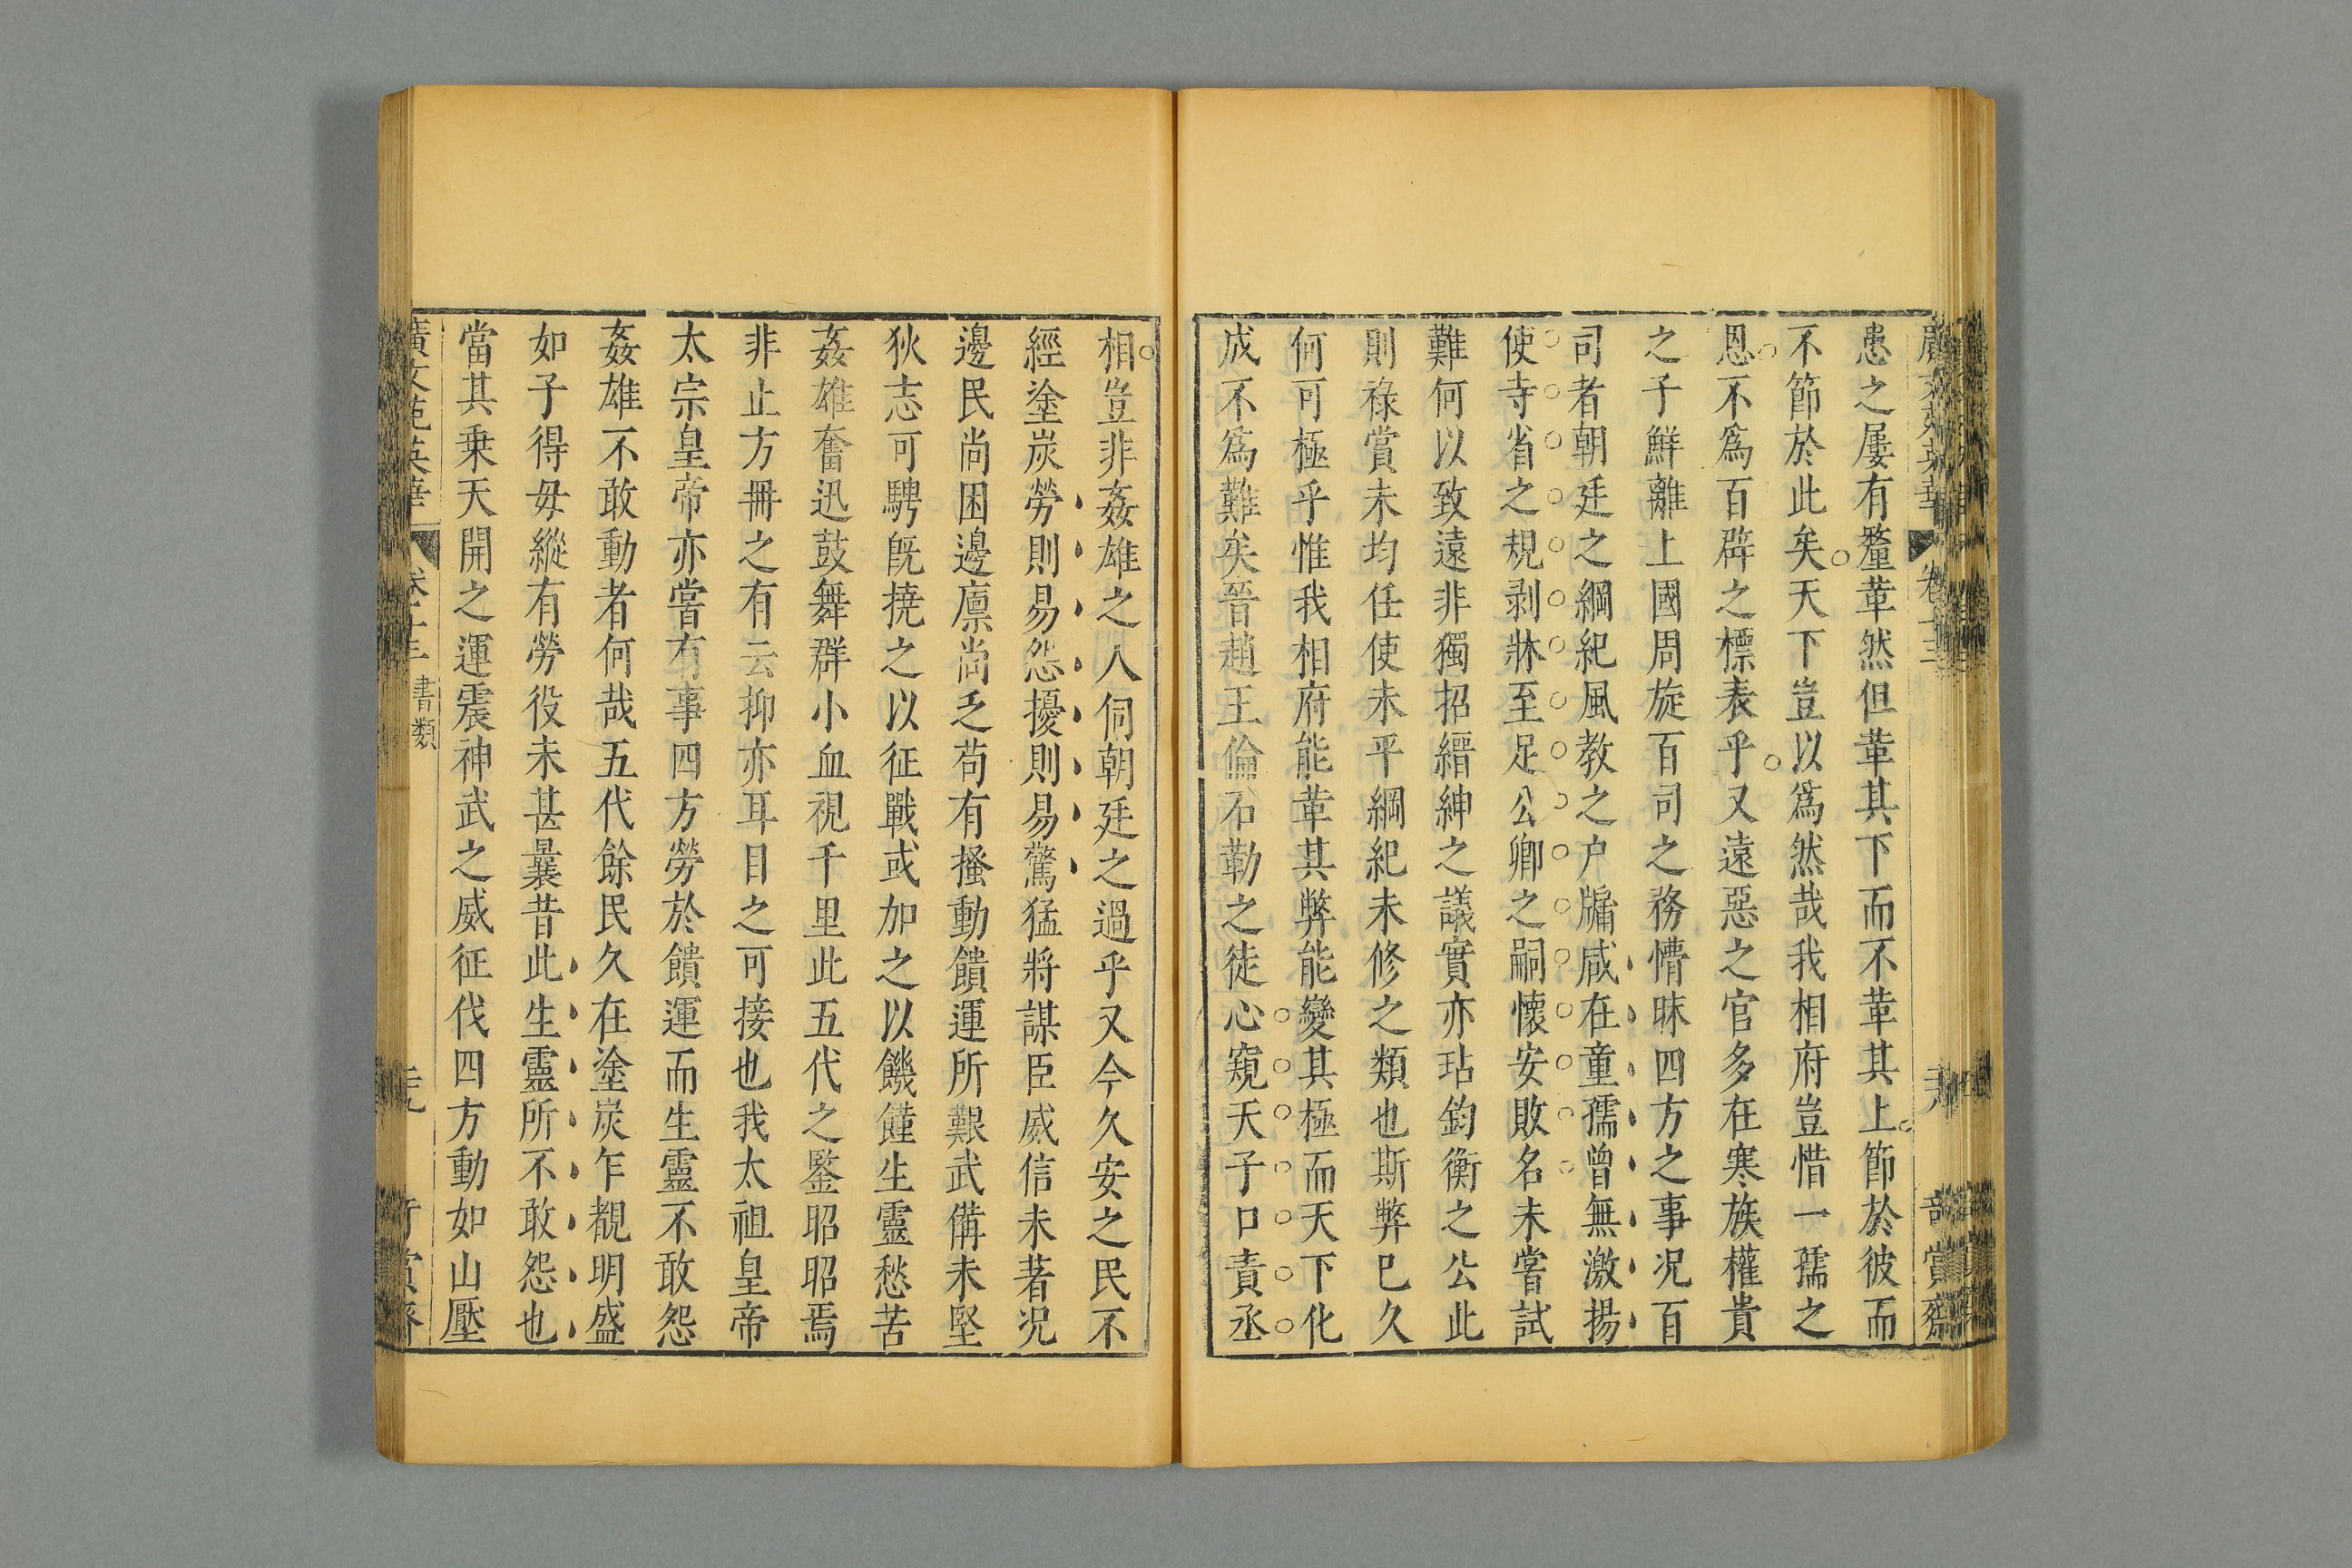 患之屢有釐革然但革其下而不革其上節於彼而
不節於此矣天下豈以爲然哉我相府豈惜一孺之
恩不爲百辟之標表乎又遠惡之官多在寒族權貴
之子鮮離上國周旋百司之務懵昧四方之事况百
司者朝廷之綱紀風教之户牖咸在童孺曾無激揚
使寺省之規剥牀至足公卿之嗣懷安敗名未嘗試
難何以致遠非獨招縉紳之議實亦玷鈞衡之公此
則祿賞未均任使未平綱紀未修之類也斯弊已久
何可極乎惟我相府能革其弊能變其極而天下化
成不爲難矣晉趙王倫石勒之徒心窺天子口責丞
相豈非姦雄之人伺朝廷之過乎又今久安之民不
經塗炭勞則易怨擾則易驚猛將謀臣威信未著况
邊民尚困邊廩尚乏苟有搔動饋運所艱武備未堅
狄志可騁旣撓之以征戰或加之以饑饉生靈愁苦
姦雄奮迅鼓舞群小血視千里此五代之鑒昭昭焉
非止方冊之有云抑亦耳目之可接也我太祖皇帝
太宗皇帝亦嘗有事四方勞於饋運而生靈不敢怨
姦雄不敢動者何哉五代餘民久在塗炭乍覩明盛
如子得母縱有勞役未甚曩昔此生靈所不敢怨也
當其乗天開之運震神武之威征伐四方動如山壓
廣文苑英華 書類